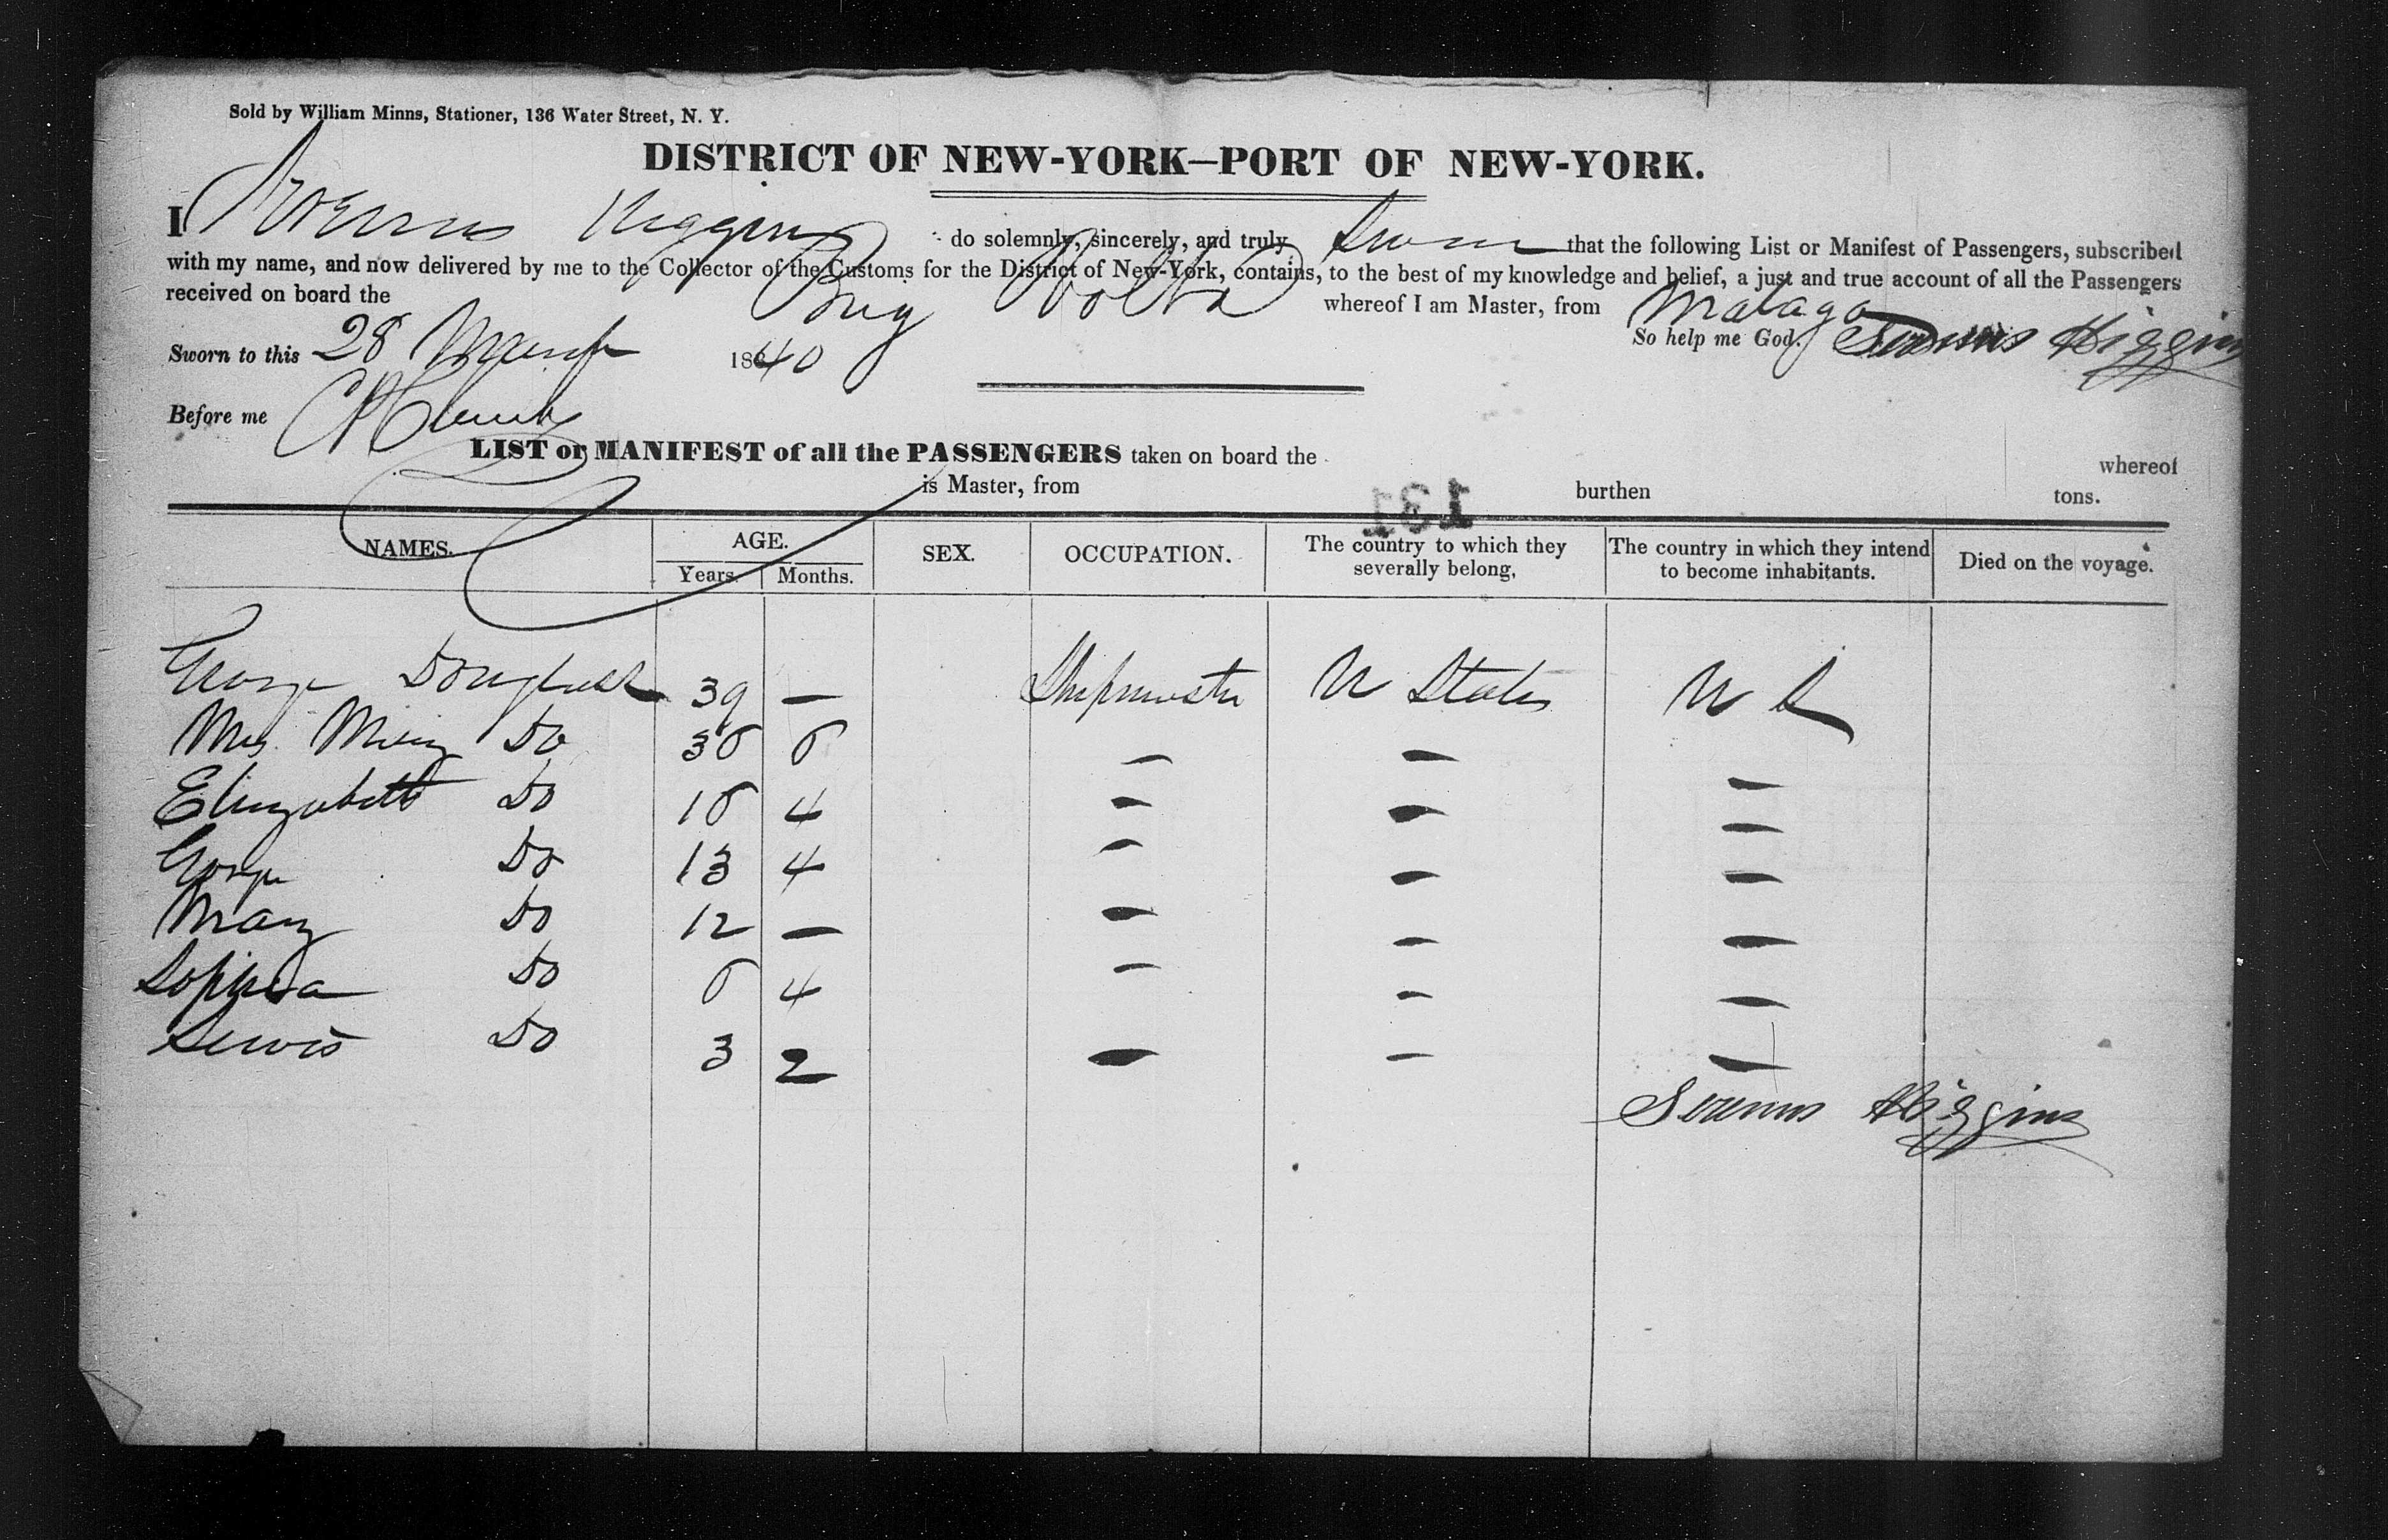 Sold by William Minns, Stationer, 136 Water Street, N. Y.
DISTRICT OF NEW-YORK—PORT OF NEW-YORK.
I Higgins do solemnly, sincerely, and truly swear that the following List or Manifest of Passengers, subscribed
with my name, and now delivered by me to the Collector of the Customs for the District of New-York, contains, to the best of my knowledge and belief, a just and true account of all the Passengers
received on board the Brig Volta whereof I am Master, from Malaga
So help me God. Serenus Higgins
Sworn to this 28 March 1840
Before me
LIST or MANIFEST of all the PASSENGERS taken on board the whereof
is Master, from burthen tons.
131
NAMES. AGE. SEX. OCCUPATION. The country to which they severally belong, The country in which they intend to become inhabitants. Died on the voyage.
Years. Months.
George 39 — Shipmaster U States U S
Mrs. Do 36 6 — — —
Elizabeth Do 16 4 — — —
George Do 13 4 — — —
Mary Do 12 — — — —
Sophia Do 6 4 — — —
Lewis Do 3 2 — — —
Serenus Higgins